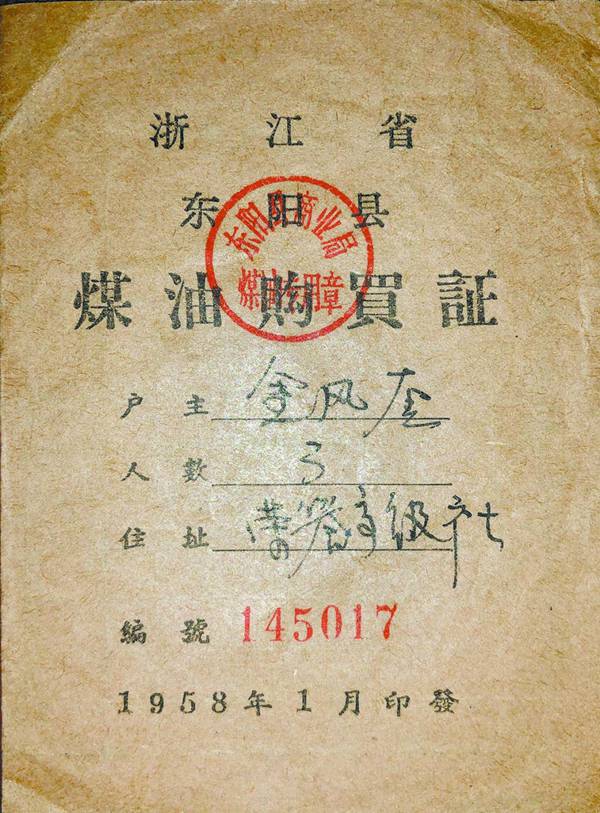 浙江省
东阳县
东阳县商业局
煤油专用章
煤油购買証
户主 金风奎
人數 3
住址 高级社
編號 145017
1958年1月印發